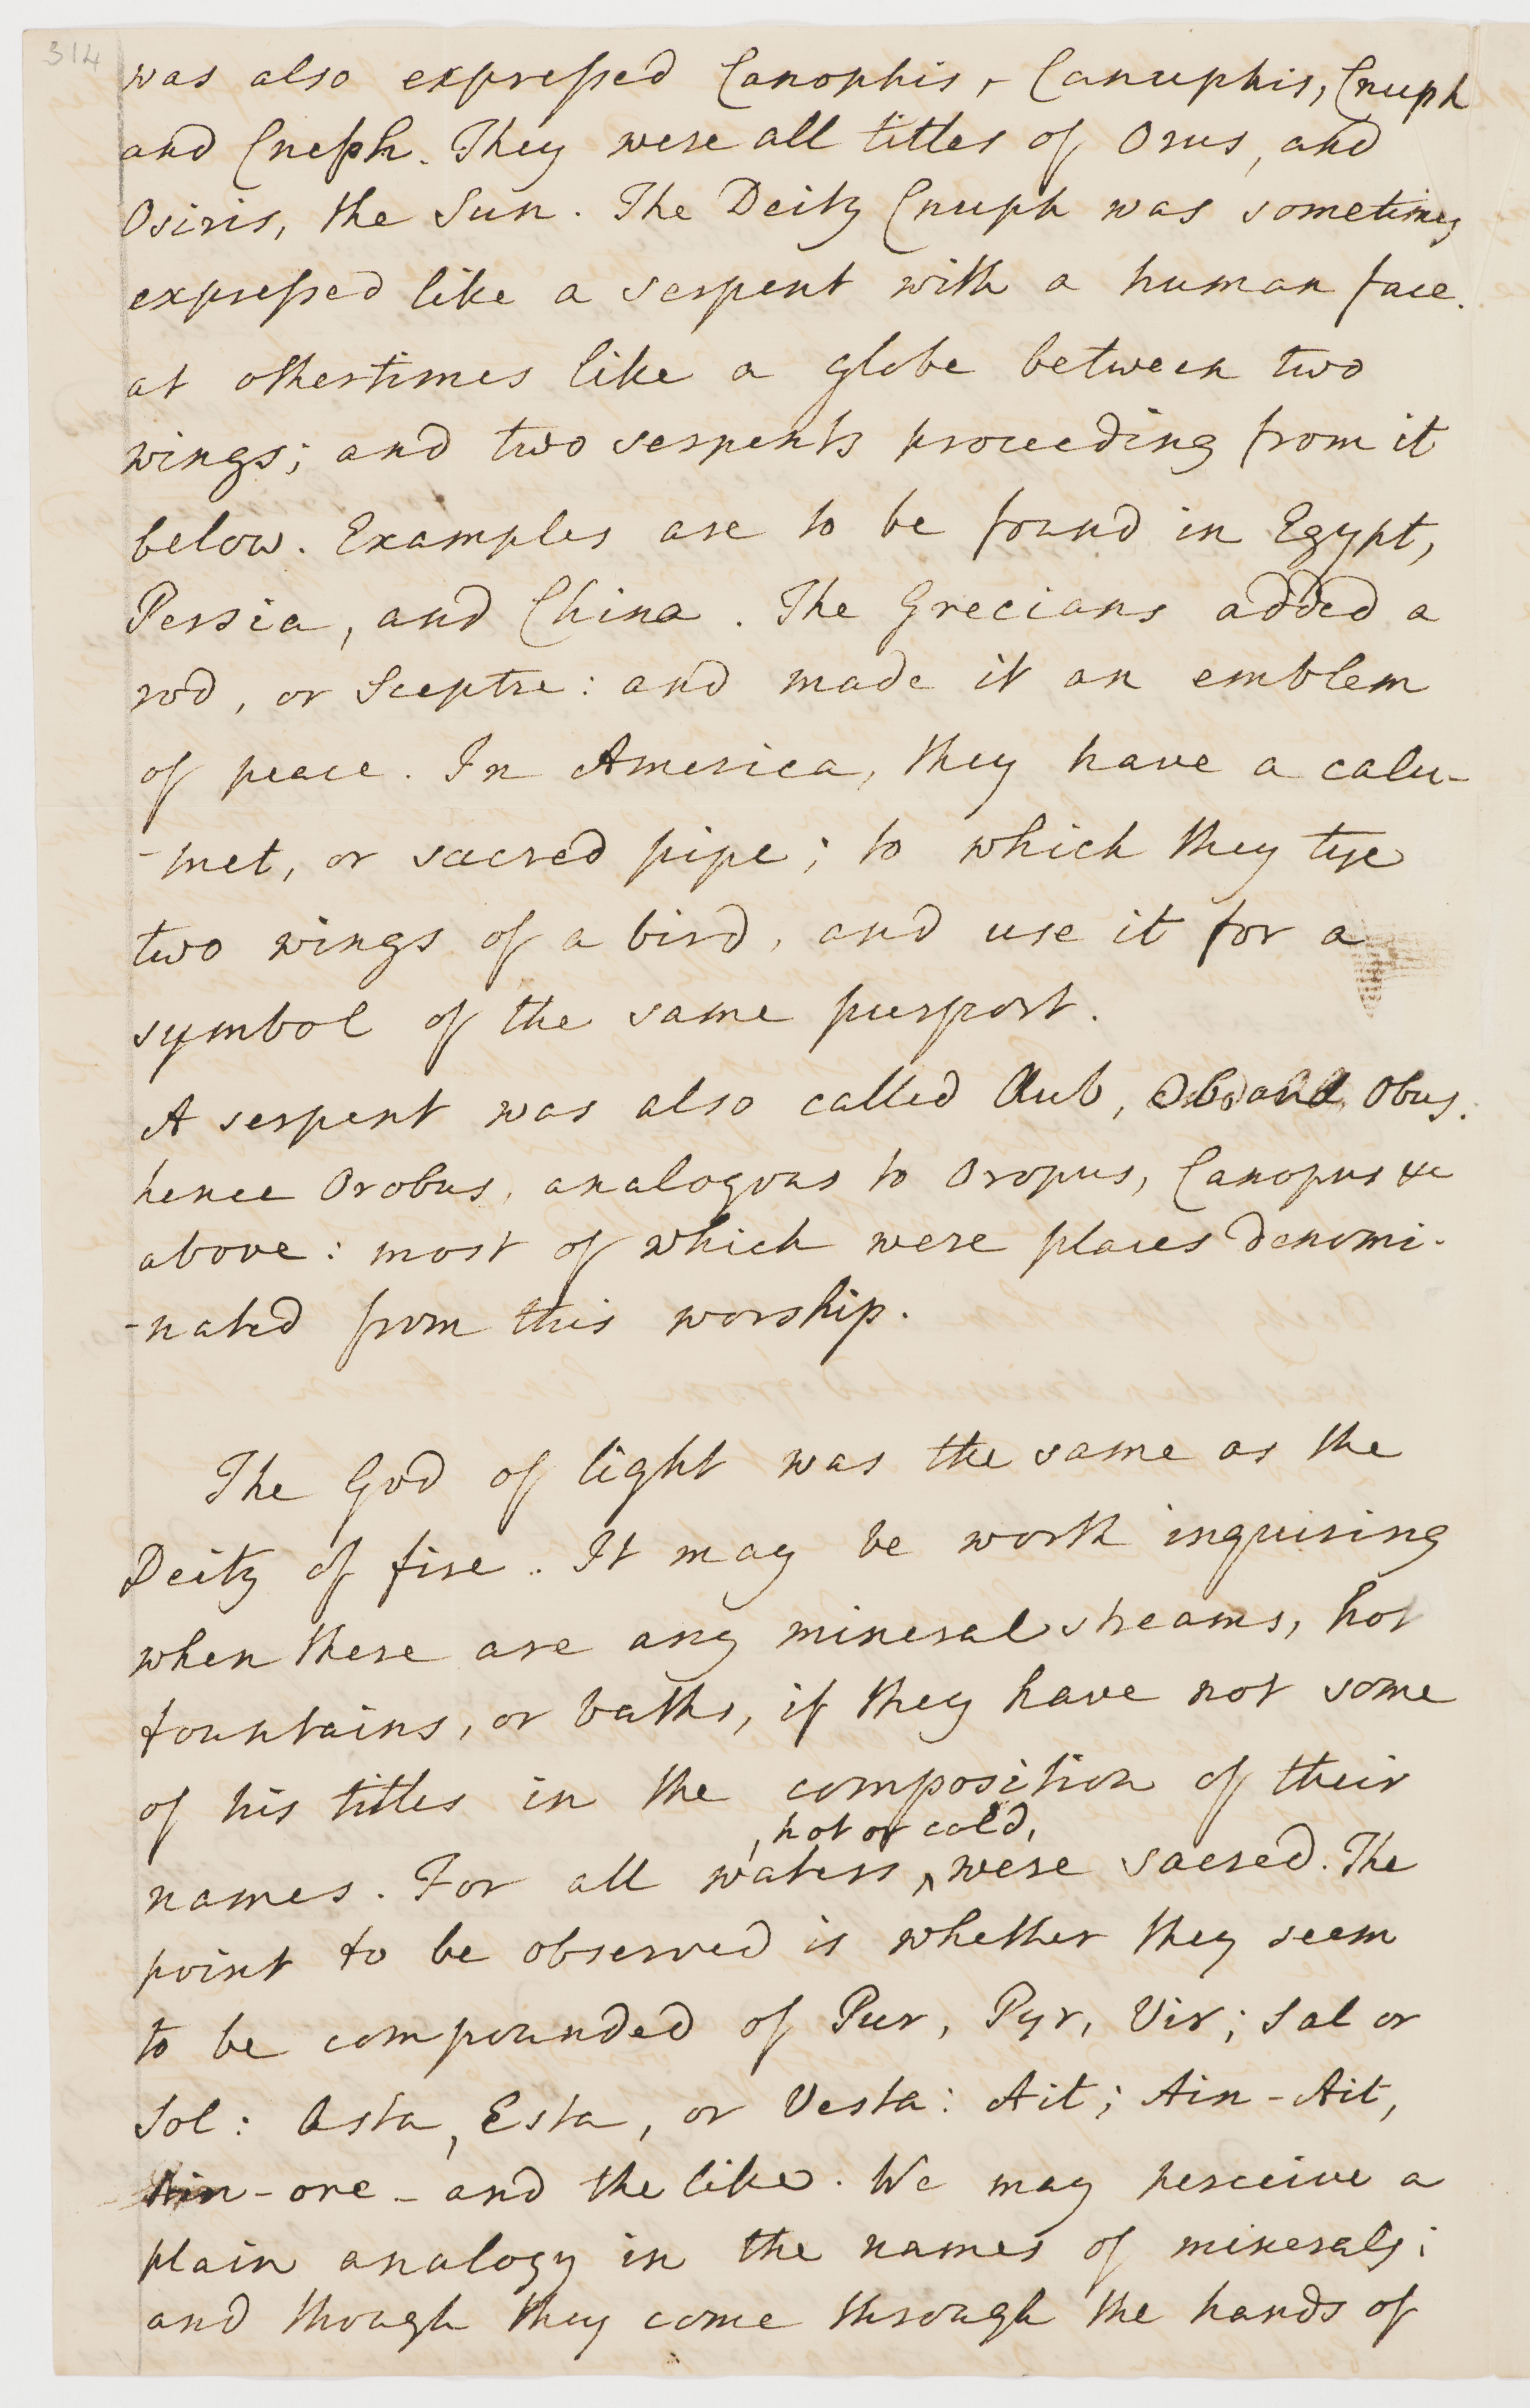 314
was also expressed Canophis, Canuphis, Cnuph
and Cneph. They were all titles of Orus, and
Osiris, the Sun. The Deity Cnuph was sometimes
expressed like a serpent with a human face.
at othertimes like a globe between two
wings; and two serpents proceeding from it
below. Examples are to be found in Egypt,
Persia, and China. The Grecians added a
rod, or Sceptre: and made it an emblem
of peace. In America, they have a calu-
-met, or sacred pipe; to which they tye
two wings of a bird, and use it for a
symbol of the same purport.
A serpent was also called Aub, Ob, and Obus.
hence Orobus, analogous to Oropus, Canopus &c
above: most of which were places denomi-
-nated from this worship.
The God of light was the same as the
Deity of fire. It may be worth inquiring
when there are any mineral streams, hot
fountains, or baths, if they have not some
of his titles in the composition of their
, hot or cold,
names. For all waters ^ were sacred. The
point to be observed is whether they seem
to be compounded of Pur, Pyr, Vir; Sal or
Sol: Asta, Esta, or Vesta: Ait; Ain-Ait,
Ain-ore - and the like. We may perceive a
plain analogy in the names of minerals;
and though they come through the hands of